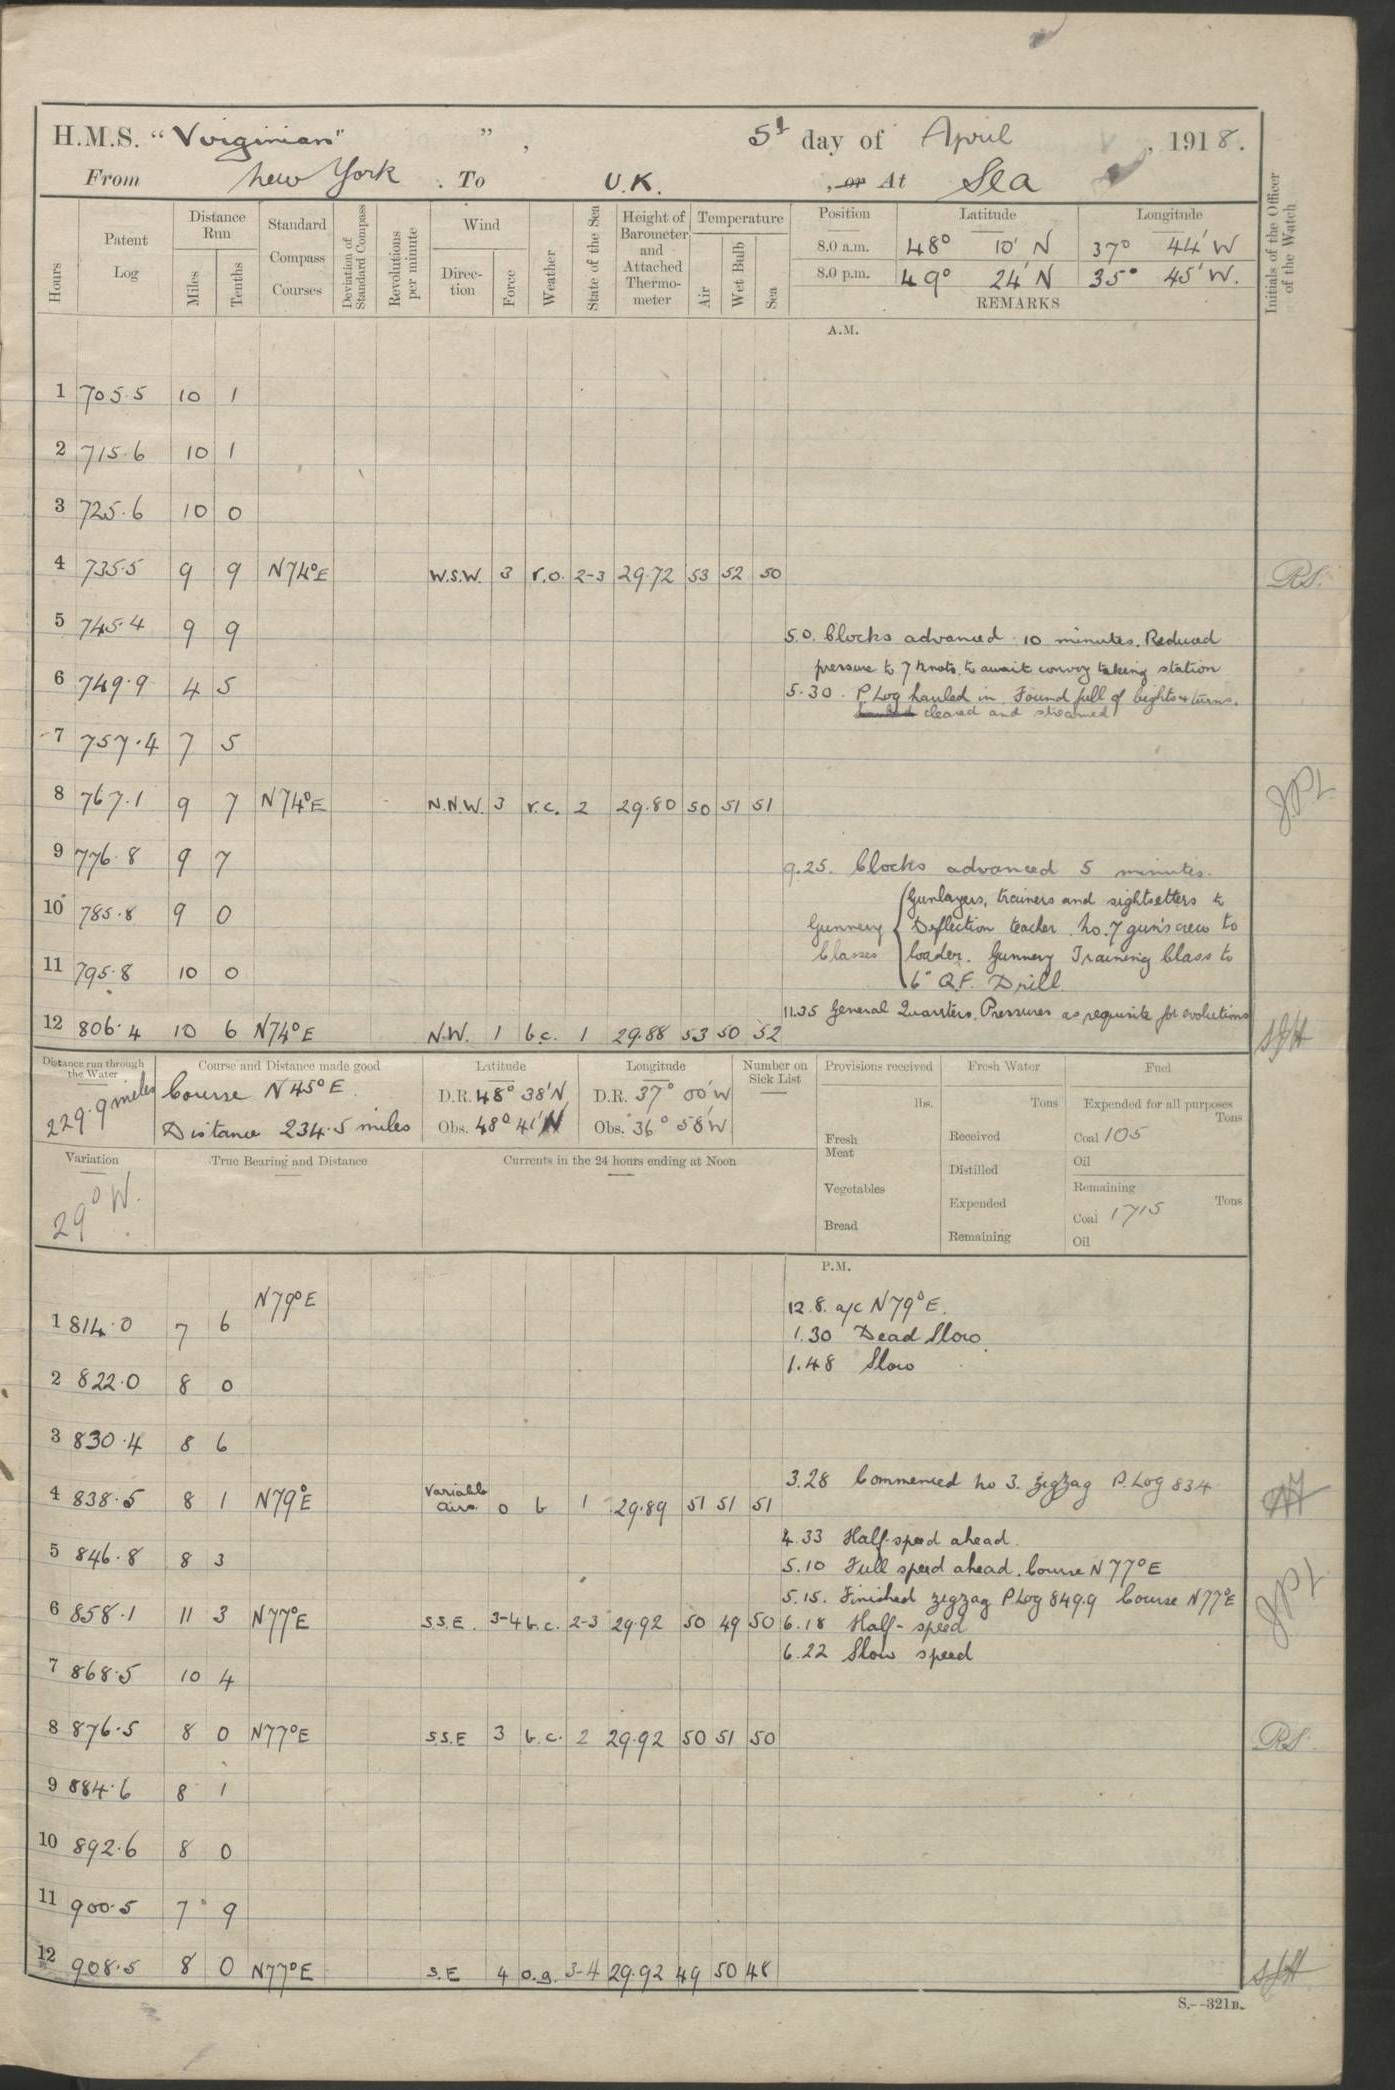 H.M.S. "Virginian" ", 5th day of April, 1918.
From New York. To U.K., or At Sea
Initials of the Officer of the Watch
Hours
Patent Log
Distance Run
Miles
Tenths
Standard Compass Courses
Deviation of Standard Compass
Revolutions per minute
Wind
Direction
Force
Weather
State of the Sea
Height of Barometer and Attached Thermometer
Temperature
Air
Wet Bulb
Sea
Position Latitude Longitude
8.0 a.m. 48° 10' N 37° 44' W
8.0 p.m. 49° 24' N 35° 45' W.
REMARKS
A.M.
1 705.5 10 1
2 715.6 10 1
3 725.6 10 0
4 735.5 9 9 N74°E W.S.W. 3 r.o. 2-3 29.72 53 52 50 RS.
5 745.4 9 9
5.0. Clocks advanced 10 minutes. Reduced
pressure to 7 knots to await convoy taking station
6 749.9 4 5
5.30. P. Log hauled in. Found full of bights & turns.
cleared and streamed
7 757.4 7 5
8 767.1 9 7 N74°E N.N.W. 3 r.c. 2 29.80 50 51 51
9 776.8 9 7
9.25. Clocks advanced 5 minutes.
10 785.8 9 0
Gunnery Classes
Gunlayers, trainers and sightsetters to
Deflection teacher. No. 7 gun's crew to
loader. Gunnery Training Class to
6" Q.F. Drill
11 795.8 10 0
11.35 General Quarters. Pressures as requisite for evolutions
12 806.4 10 6 N74°E N.W. 1 b.c. 1 29.88 53 50 52
Distance run through the Water
229.9 miles
Course and Distance made good
Course N 45° E.
Distance 234.5 miles
Latitude
D.R. 48° 38' N
Obs. 48° 41' N
Longitude
D.R. 37° 00' W
Obs. 36° 58' W
Number on Sick List
Provisions received
lbs.
Fresh Meat
Vegetables
Bread
Fresh Water
Tons
Received
Distilled
Expended
Remaining
Fuel
Expended for all purposes
Tons
Coal 105
Oil
Remaining
Tons
Coal 1715
Oil
Variation
29° W.
True Bearing and Distance
Currents in the 24 hours ending at Noon
P.M.
N79°E
12.8. a/c N79°E.
1 814.0 7 6
1.30 Dead Slow.
1.48 Slow
2 822.0 8 0
3 830.4 8 6
3.28 Commenced No 3. zigzag P. Log 834
4 838.5 8 1 N79°E Variable airs 0 b 1 29.89 51 51 51
4.33 Half-speed ahead.
5 846.8 8 3
5.10 Full speed ahead. Course N77°E
5.15. Finished zigzag P Log 849.9 Course N77°E
6 858.1 11 3 N77°E S.S.E. 3-4 b.c. 2-3 29.92 50 49 50
6.18 Half-speed
6.22 Slow speed
7 868.5 10 4
8 876.5 8 0 N77°E S.S.E 3 b.c. 2 29.92 50 51 50 RS.
9 884.6 8 1
10 892.6 8 0
11 900.5 7 9
12 908.5 8 0 N77°E S.E 4 o.g. 3-4 29.92 49 50 48
S.--321B.